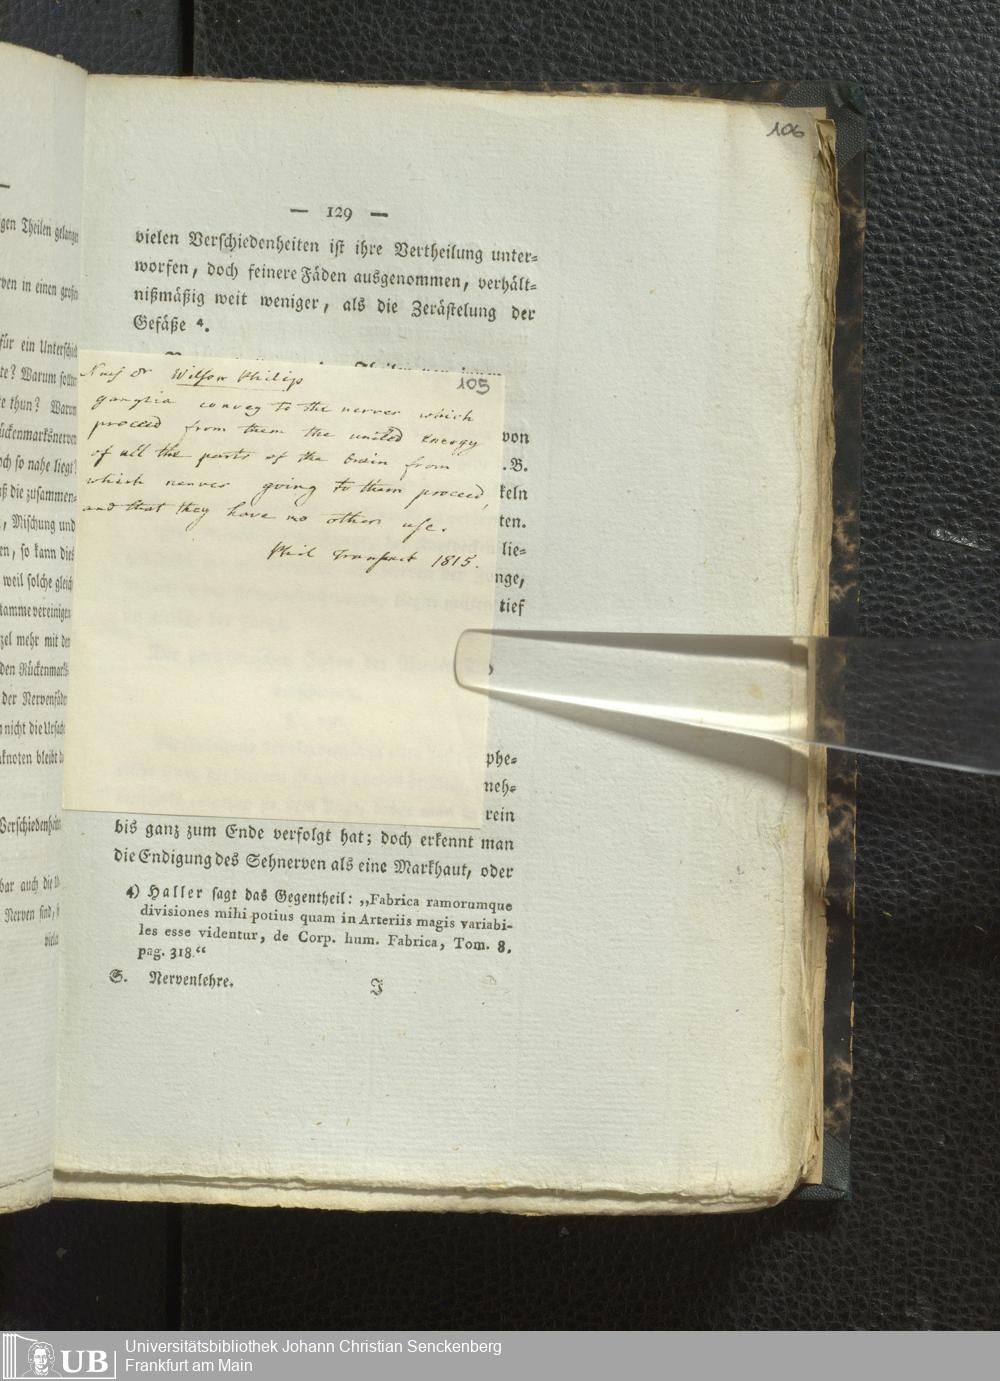 106
— 129 —
vielen Verſchiedenheiten iſt ihre Vertheilung unter⸗
worfen, doch feinere Fäden ausgenommen, verhält⸗
nißmäßig weit weniger, als die Zeräſtelung der
Gefäße 4.
105
Nach Dr Wilson Philip
ganglia convey to the nerves which
proceed from them the united energy
of all the parts of the brain from
which nerves going to them proceed,
and that they have no other use.
Phil Transact 1815.
von
. B.
keln
ten.
lie⸗
nge,
tief
phe⸗
neh⸗
rein
bis ganz zum Ende verfolgt hat; doch erkennt man
die Endigung des Sehnerven als eine Markhaut, oder
4) Haller ſagt das Gegentheil: „Fabrica ramorumque
divisiones mihi potius quam in Arteriis magis variabi-
les esse videntur, de Corp. hum. Fabrica, Tom. 8.
pag. 318.“
S. Nervenlehre.
J
gen Theilen gelangen
ven in einen großen
für ein Unterſchied
te? Warum ſollte
e thun? Warum
ückenmarksnerven
och ſo nahe liegt?
ß die zuſammen⸗
, Miſchung und
en, ſo kann dies
weil ſolche gleich
tamme vereinigen
zel mehr mit der
den Rückenmarks⸗
der Nervenfäden
nicht die Urſache
knoten bleibt
Verſchiedenheiten
bar auch die
Nerven ſind,
vielen
UB
Universitätsbibliothek Johann Christian Senckenberg
Frankfurt am Main